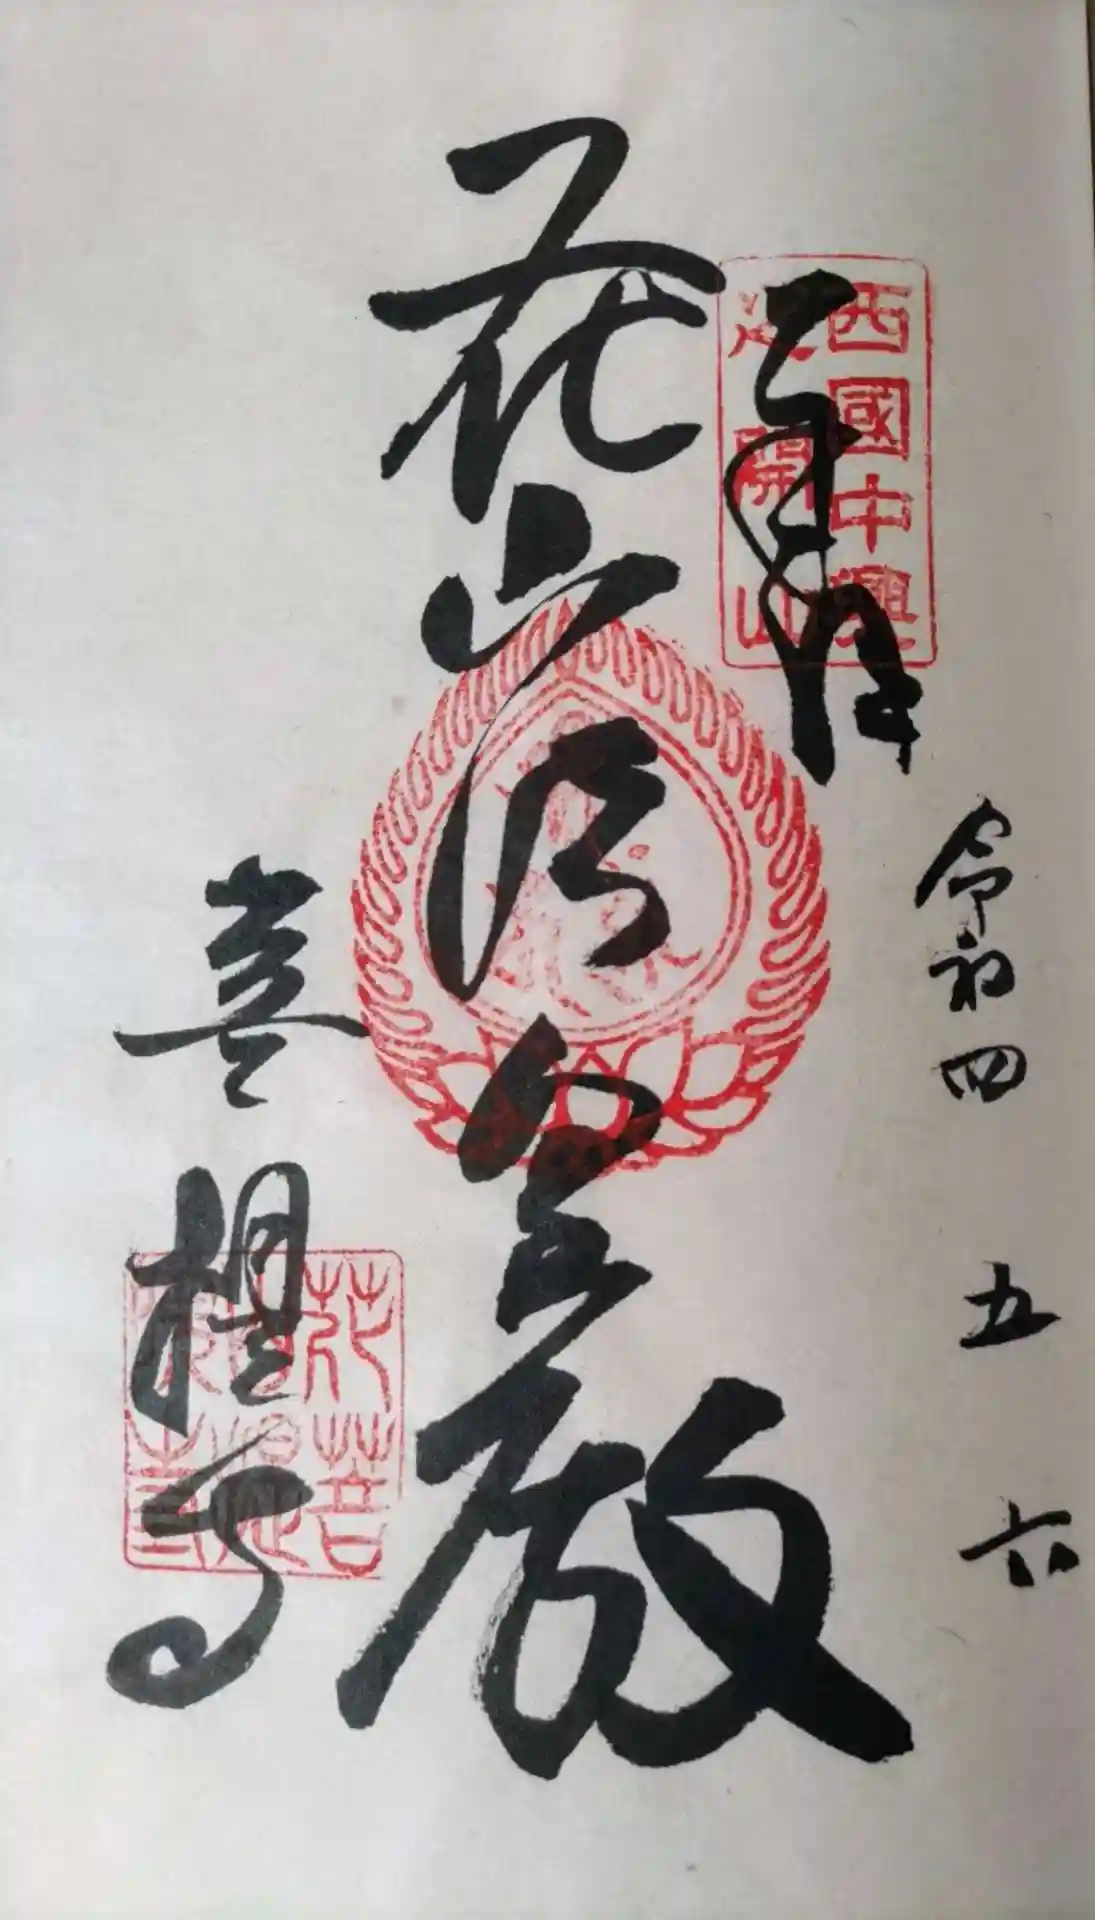 令和四 五 六
奉拝
西國中興
開山
花山法皇殿
菩提寺
花山院
菩提寺